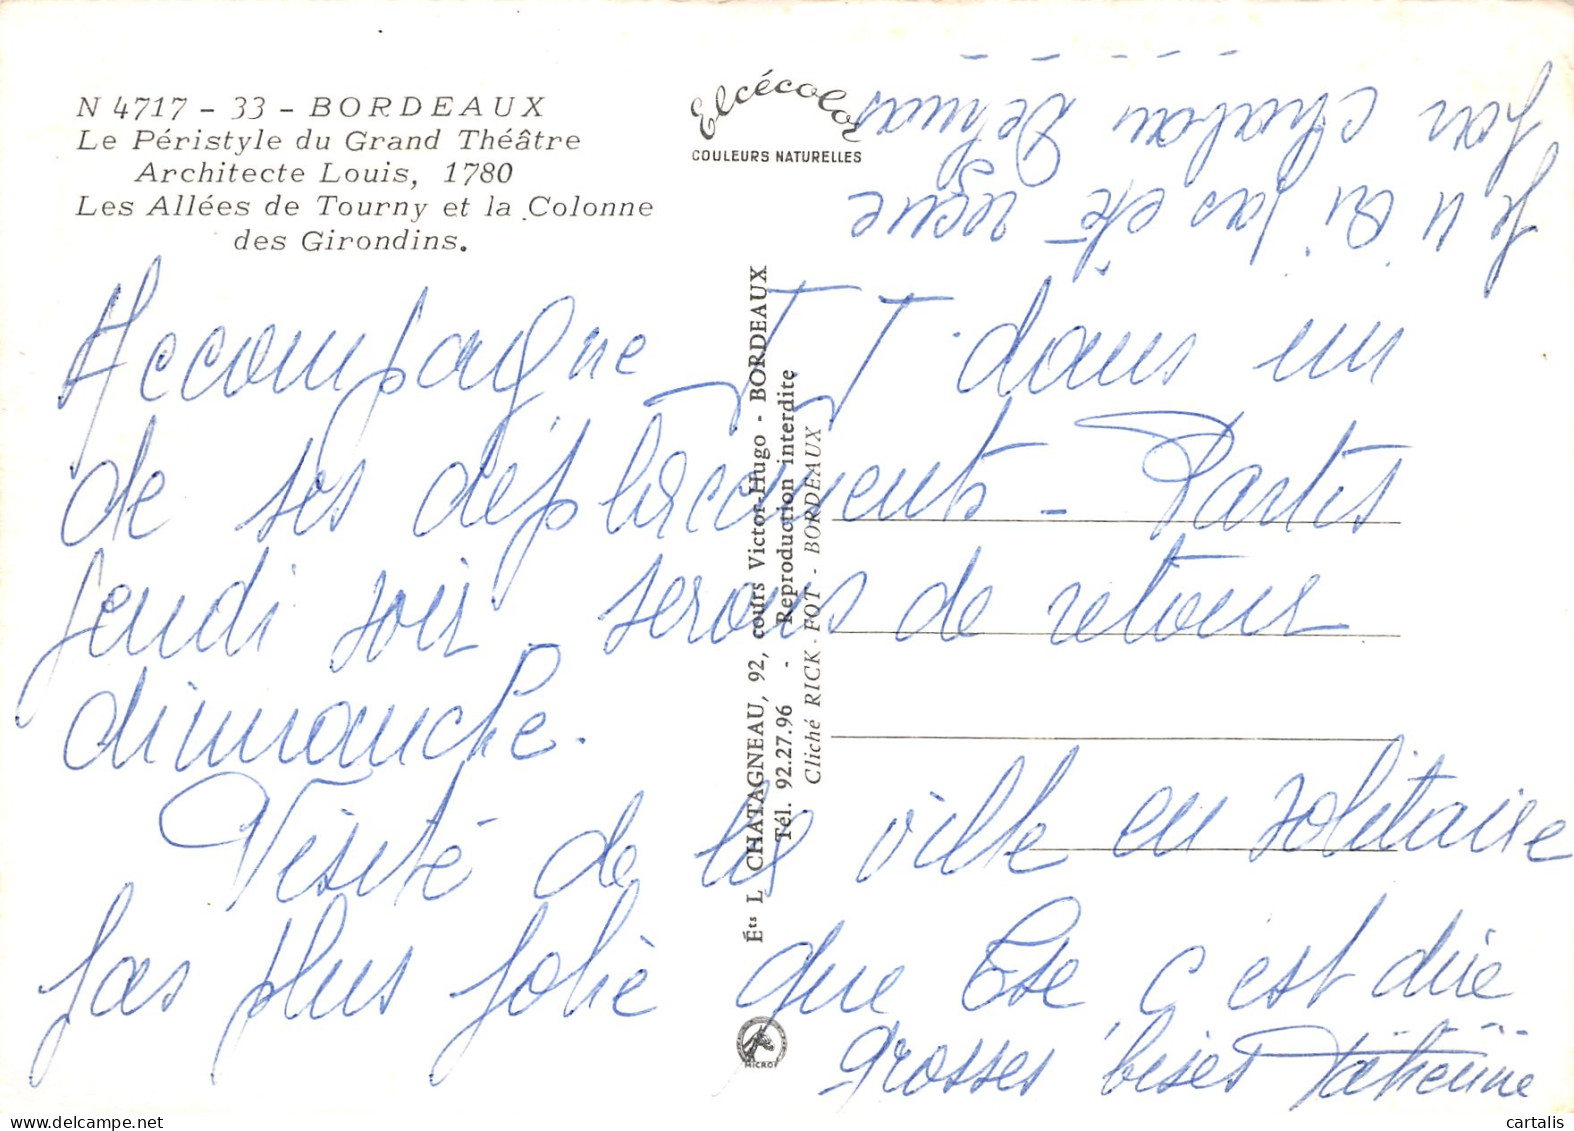 N 4717 - 33 - BORDEAUX
Le Péristyle du Grand Théâtre
Architecte Louis, 1780
Les Allées de Tourny et la Colonne
des Girondins.
Elcécolor
COULEURS NATURELLES
Éts L. CHATAGNEAU, 92, cours Victor-Hugo - BORDEAUX
Tél. 92.27.96 - Reproduction interdite
Cliché RICK - FOT - BORDEAUX
MICRO
Accompagne J.J. dans un
de ses déplacements - Partis
jeudi soir - serons de retour
dimanche.
Visité de la ville en solitaire
pas plus jolie que c'est dire
grosses bises
Je n'ai pas été reçue
par Chaban Delmas
cartalis
www.delcampe.net